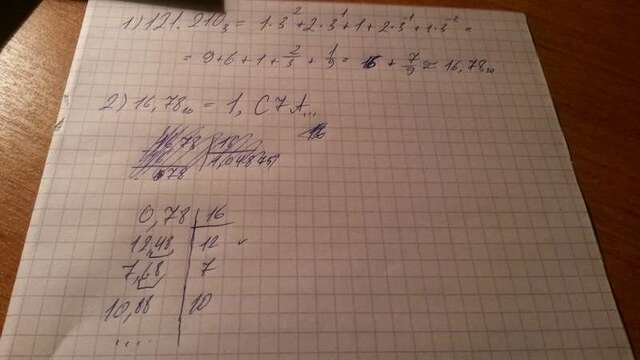 1) 121.210₃ = 1·3²+2·3¹+1+2·3¹+1·3² =
= 9+6+1+2/3+1/9 = 16 + 7/9 ≈ 16,78₁₀
2) 16,78₁₀ = 1, C7A...
16
0,78 | 16
12,48 | 12
7,68 | 7
10,88 | 10
....